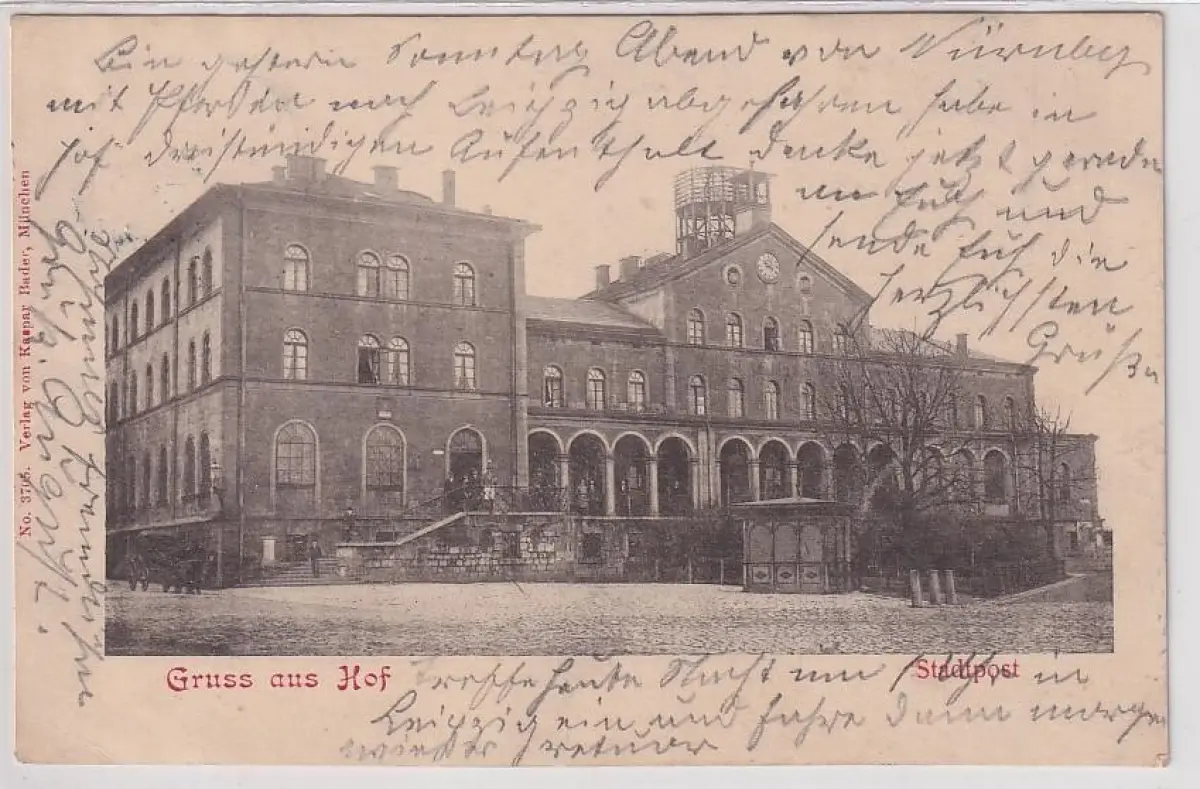 Bin gestern Sonntag Abend von Nürnberg
mit Pferden nach Leipzig abgefahren habe in
Hof dreistündigen Aufenthalt denke jetzt gerade
an Euch und
sende Euch die
herzlichsten
Grüße
treffe heute Nacht um Uhr in
Leipzig ein und fahre dann morgen
wieder retour
Gruss aus Hof
Stadtpost
No. 3706. Verlag von Kaspar Bader, München